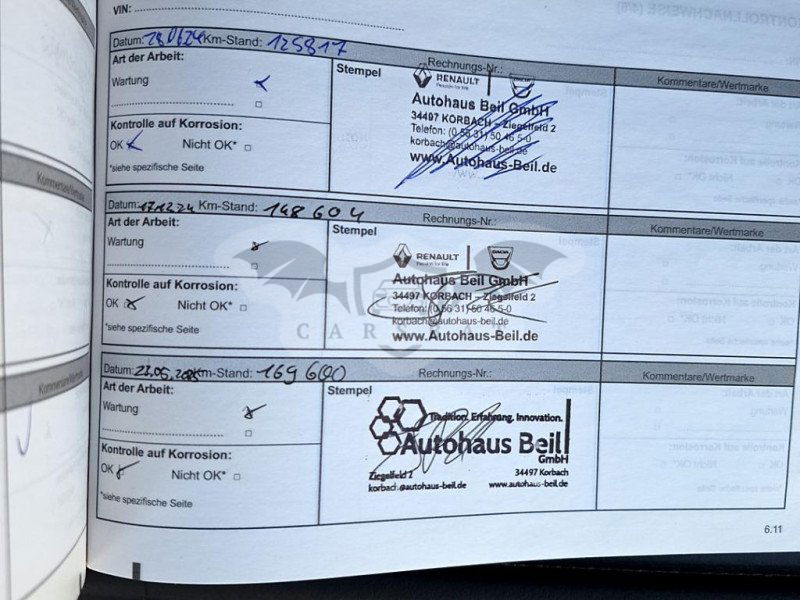 VIN:
Datum: Km-Stand: 125817 Rechnungs-Nr.: Kommentare/Wertmarke
Art der Arbeit:
Wartung
Kontrolle auf Korrosion:
OK Nicht OK*
*siehe spezifische Seite
Stempel
RENAULT DACIA
Autohaus Beil GmbH
34497 KORBACH – Ziegelfeld 2
Telefon: (0 56 31) 50 46 5-0
korbach@autohaus-beil.de
www.Autohaus-Beil.de
Datum: 17.12.24 Km-Stand: 148 604 Rechnungs-Nr.: Kommentare/Wertmarke
Art der Arbeit:
Wartung
Kontrolle auf Korrosion:
OK Nicht OK*
*siehe spezifische Seite
Stempel
RENAULT DACIA
Autohaus Beil GmbH
34497 KORBACH – Ziegelfeld 2
Telefon: (0 56 31) 50 46 5-0
korbach@autohaus-beil.de
www.Autohaus-Beil.de
Datum: 23.05.2025 Km-Stand: 169 600 Rechnungs-Nr.: Kommentare/Wertmarke
Art der Arbeit:
Wartung
Kontrolle auf Korrosion:
OK Nicht OK*
*siehe spezifische Seite
Stempel
Tradition. Erfahrung. Innovation.
Autohaus Beil
GmbH
Ziegelfeld 2 34497 Korbach
korbach@autohaus-beil.de www.autohaus-beil.de
6.11